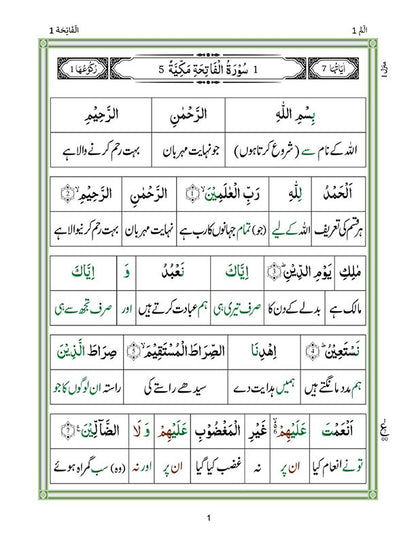 الٓمّ 1 الْفَاتِحَة 1
اٰیَاتُهَا 7 1 سُوْرَةُ الْفَاتِحَةِ مَكِّيَّةٌ 5 رُكُوْعُهَا 1
منزل ۱
بِسْمِ اللّٰهِ الرَّحْمٰنِ الرَّحِیْمِ
اللہ کے نام سے (شروع کرتا ہوں) جو نہایت مہربان بہت رحم کرنے والا ہے
اَلْحَمْدُ لِلّٰهِ رَبِّ الْعٰلَمِیْنَ ۙ﴿۱﴾ الرَّحْمٰنِ الرَّحِیْمِ ۙ﴿۲﴾
ہر قسم کی تعریف اللہ کے لیے (جو) تمام جہانوں کا رب ہے نہایت مہربان بہت رحم کرنیوالا ہے
مٰلِكِ یَوْمِ الدِّیْنِ ؕ﴿۳﴾ اِیَّاكَ نَعْبُدُ وَ اِیَّاكَ
مالک ہے بدلے کے دن کا صرف تیری ہی ہم عبادت کرتے ہیں اور صرف تجھ سے ہی
نَسْتَعِیْنُ ؕ﴿۴﴾ اِهْدِنَا الصِّرَاطَ الْمُسْتَقِیْمَ ۙ﴿۵﴾ صِرَاطَ الَّذِیْنَ
ہم مدد مانگتے ہیں ہمیں ہدایت دے سیدھے راستے کی راستہ ان لوگوں کا جو
اَنْعَمْتَ عَلَیْهِمْ ۙ۬﴿۶﴾ غَیْرِ الْمَغْضُوْبِ عَلَیْهِمْ وَ لَا الضَّآلِّیْنَ ﴿۷﴾
تو نے انعام کیا ان پر نہ غضب کیا گیا ان پر اور نہ (وہ) سب گمراہ ہوئے
1